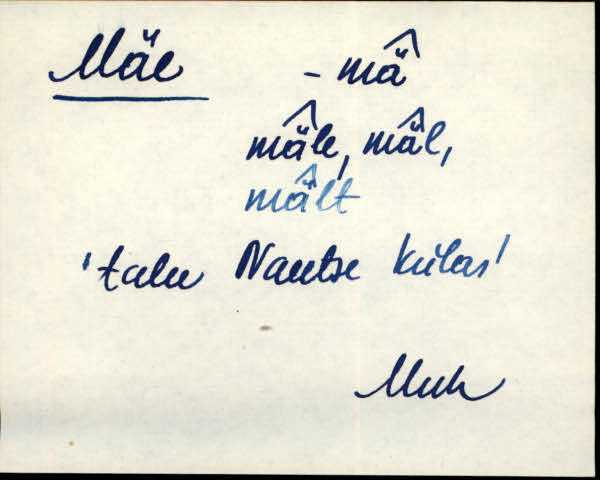 Mäe - mä̂
mä̂le, mä̂l,
mä̂lt
'talu Nautse külas'
Muh